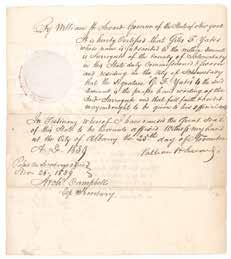 By William H. Seward Governor of the State of New York
It is hereby Certified that Giles F. Yates
whose name is subscribed to the
is Surrogate of the County of Schenectady
in this State duly Commissioned
and residing in the City of Schenectady
that the Signature G. F. Yates to the said
is the proper hand writing of the
said Surrogate and that full faith and credit
may and ought to be given to his official
In Testimony Whereof I have caused the Great Seal
of this State to be hereunto affixed Witness my hand
at the City of Albany the 25th day of November
A.D. 1839
William H. Seward
Passed the Secretary's Office
Nov. 25, 1839
Arch. Campbell
Dep Secretary